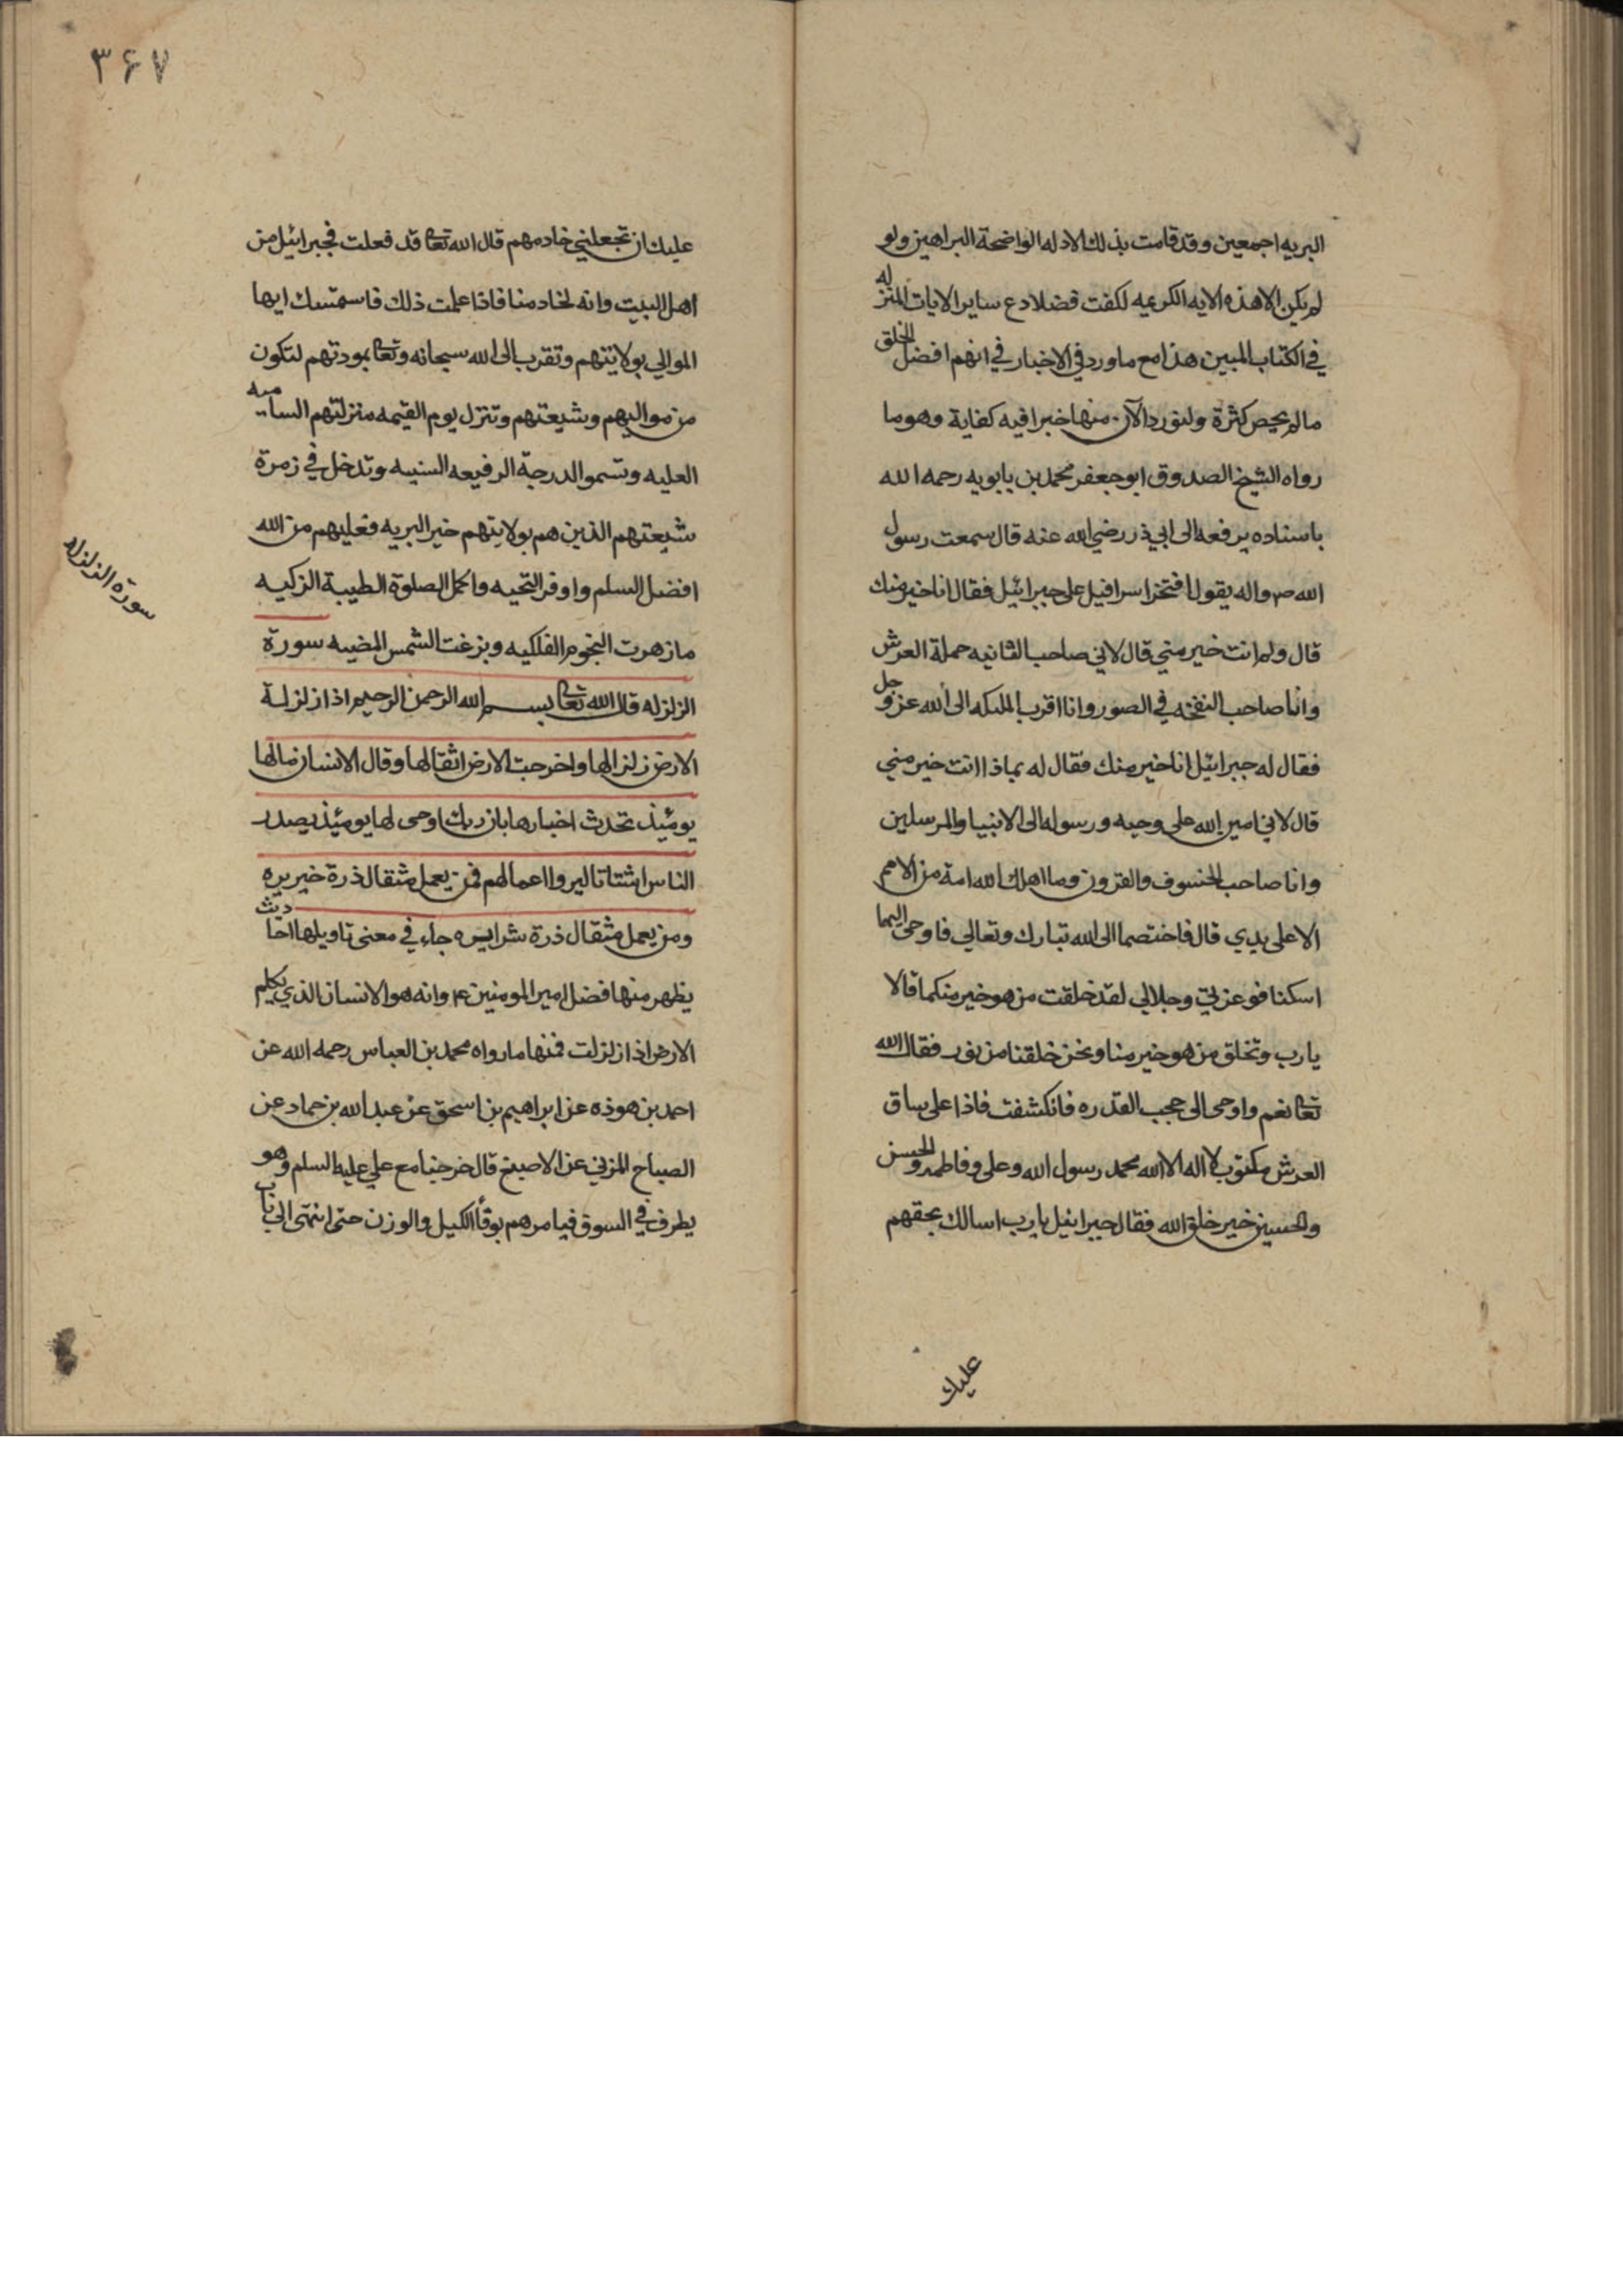 البريه اجمعين وقد قامت بذلك الادله الواضحة البراهين ولو
لم يكن الا هذه الايه الكريمه لكفت فضلا دع ساير الايات المنزله
في الكتاب المبين هذا مع ما ورد في الاخبار في انهم افضل الخلق
مالم يحص كثرة ولنورد الآن منها خبرا فيه كفاية وهو ما
رواه الشيخ الصدوق ابو جعفر محمد بن بابويه رحمه الله
باسناده يرفعه الى ابي ذر رضي الله عنه قال سمعت رسول
الله ص واله يقول افتخر اسرافيل على جبرائيل فقال انا خير منك
قال ولم انت خير مني قال لاني صاحب الثانيه حملة العرش
وانا صاحب النفخه في الصور وانا اقرب الملىكه الى الله عز وجل
فقال له جبرائيل انا خير منك فقال له بماذا انت خير مني
قال لاني امين الله على وحيه ورسوله الى الانبيا والمرسلين
وانا صاحب الخسوف والقرون وما اهلك الله امة من الامم
الا على يدي قال فاختصما الى الله تبارك وتعالي فاوحى اليهما
اسكتا فوعزتي وجلالي لقد خلقت من هو خير منكما قالا
يا رب وتخلق من هو خير منا ونحن خلقنا من نور فقال الله
تعالى نعم واوحى الى حجب القدره فانكشفت فاذا على ساق
العرش مكتوب لا اله الا الله محمد رسول الله وعلى وفاطمه والحسن
والحسين خير خلق الله فقال جبرائيل يا رب اسالك بحقهم
عليك
٣۶٧
عليك ان تجعلني خادمهم قال الله تعالى قد فعلت فجبرائيل من
اهل البيت وانه لخادمنا فاذا علمت ذلك فاستمسك ايها
الموالي بولايتهم وتقرب الى الله سبحانه وتعالى بمودتهم لتكون
من مواليهم وشيعتهم وتنزل يوم القيمه منزلتهم الساميه
العليه وتسمو الدرجة الرفيعه السنيه وتدخل في زمرة
شيعتهم الذين هم بولايتهم خير البريه فعليهم من الله
افضل السلم واوفر التحيه واكمل الصلوة الطيبة الزكيه
ما زهرت النجوم الفلكيه وبزغت الشمس المضيه سورة
الزلزله قال الله تعالى بسم الله الرحمن الرحيم اذا زلزلة
الارض زلزالها واخرجت الارض اثقالها وقال الانسان مالها
يومئذ تحدث اخبارها بان ربك اوحى لها يومئذ يصدر
الناس اشتاتا ليروا اعمالهم فمن يعمل مثقال ذرة خير يره
ومن يعمل مثقال ذرة شرا يره جاء في معنى تاويلها احاديث
يظهر منها فضل امير المومنين ع وانه هو الانسان الذي يكلم
الارض اذا زلزلت فمنها ما رواه محمد بن العباس رحمه الله عن
احمد بن هوذه عن ابراهيم بن اسحق عن عبد الله بن حماد عن
الصباح المزني عن الاصبغ قال خرجنا مع علي عليه السلم وهو
يطرف في السوق فيامرهم بوفا الكيل والوزن حتى انتهى الى باب
سورة الزلزله